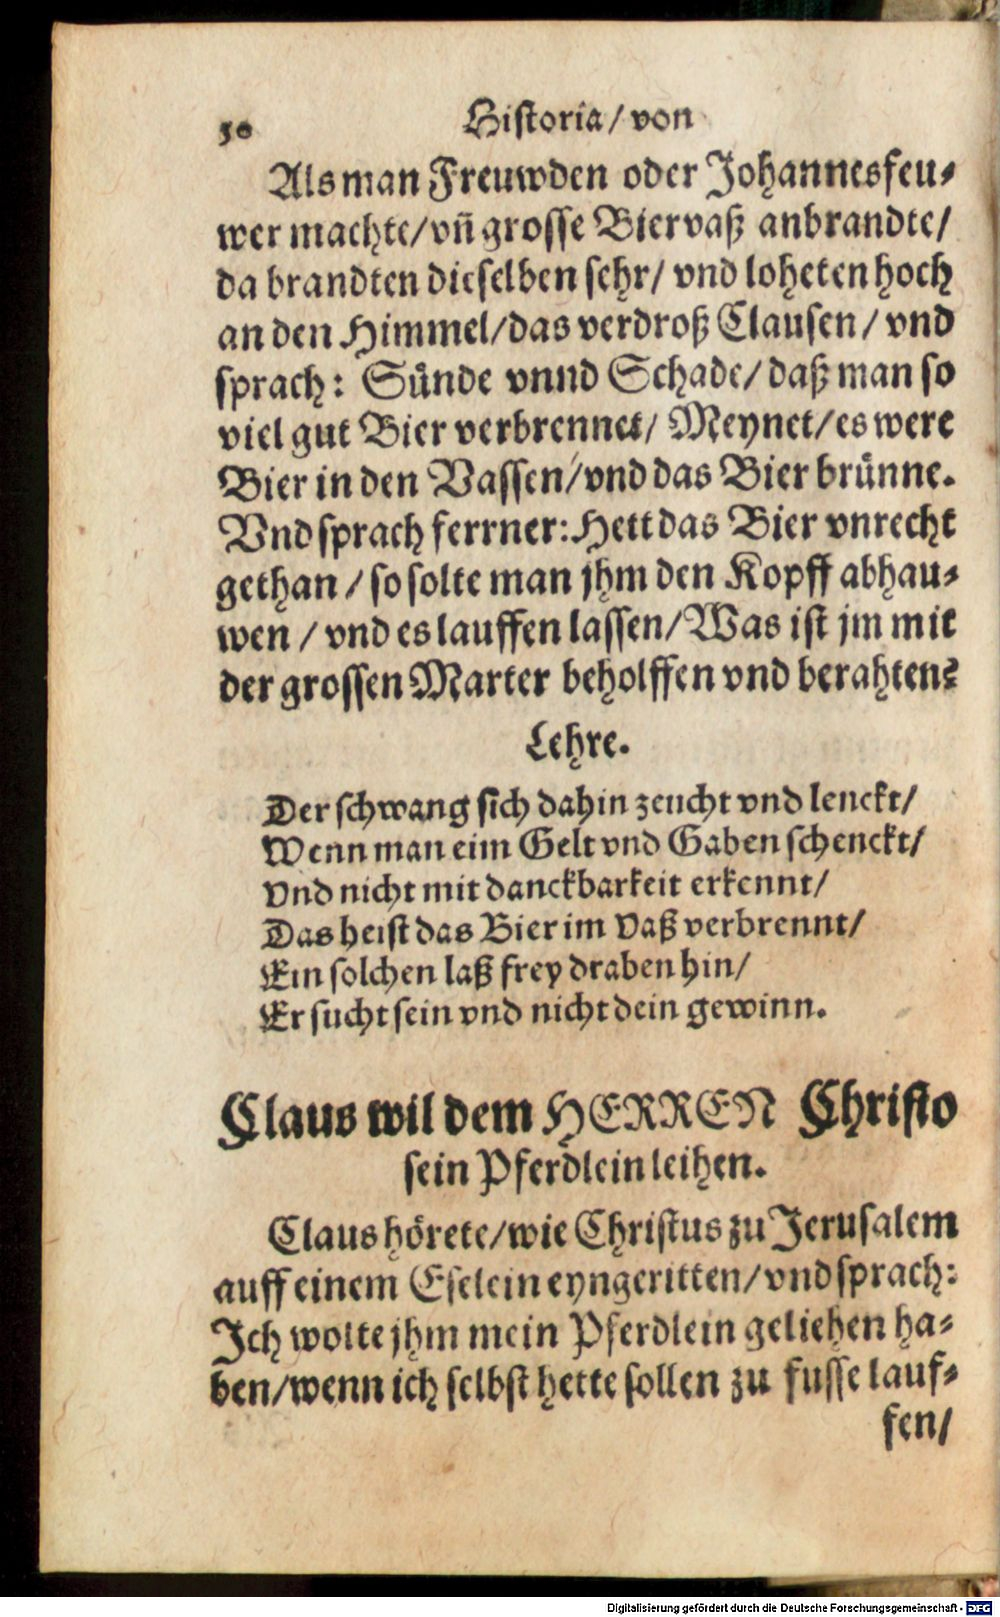 50 Historia/ von
Als man Freuwden oder Johannesfeu-
wer machte/ vñ grosse Biervaß anbrandte/
da brandten dieselben sehr/ vnd loheten hoch
an den Himmel/ das verdroß Clausen/ vnd
sprach: Sünde vnnd Schade/ daß man so
viel gut Bier verbrennet/ Meynet/ es were
Bier in den Vassen/ vnd das Bier brünne.
Vnd sprach ferrner: Hett das Bier vnrecht
gethan/ so solte man jhm den Kopff abhau-
wen/ vnd es lauffen lassen/ Was ist jm mit
der grossen Marter beholffen vnd berahten?
Lehre.
Der schwang sich dahin zeucht vnd lenckt/
Wenn man eim Gelt vnd Gaben schenckt/
Vnd nicht mit danckbarkeit erkennt/
Das heist das Bier im Vaß verbrennt/
Ein solchen laß frey draben hin/
Er sucht sein vnd nicht dein gewinn.
Claus wil dem HERREN Christo
sein Pferdlein leihen.
Claus hörete/ wie Christus zu Jerusalem
auff einem Eselein eyngeritten/ vnd sprach:
Ich wolte jhm mein Pferdlein geliehen ha-
ben/ wenn ich selbst hette sollen zu fusse lauf-
fen/
Digitalisierung gefördert durch die Deutsche Forschungsgemeinschaft - DFG